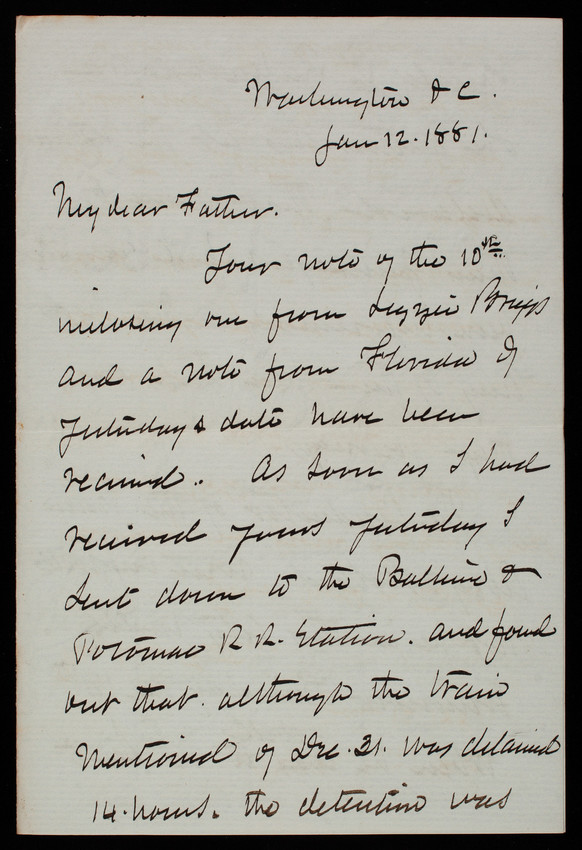 Washington D C.
Jan 12. 1881.
My dear Father.
Your note of the 10th.
inclosing one from Lizzie Briggs
and a note from Florida of
yesterdays date have been
received. As soon as I had
received yours yesterday I
sent down to the Baltimore &
Potomac R R. Station. and found
out that. although the train
mentioned of Dec. 31. was detained
14. hours. the detention was